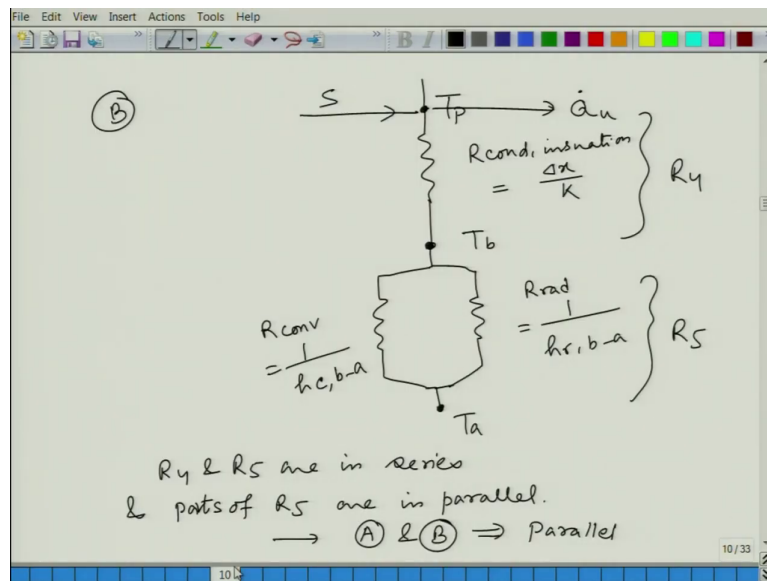 File Edit View Insert Actions Tools Help
B I
B
S Tp Q̇u
Rcond, insnation
= Δx / K
R4
Tb
Rconv
= 1 / hc,b-a
Rrad
= 1 / hr,b-a
R5
Ta
R4 & R5 are in series
& parts of R5 are in parallel.
→ A & B ⇒ Parallel
10/33
10